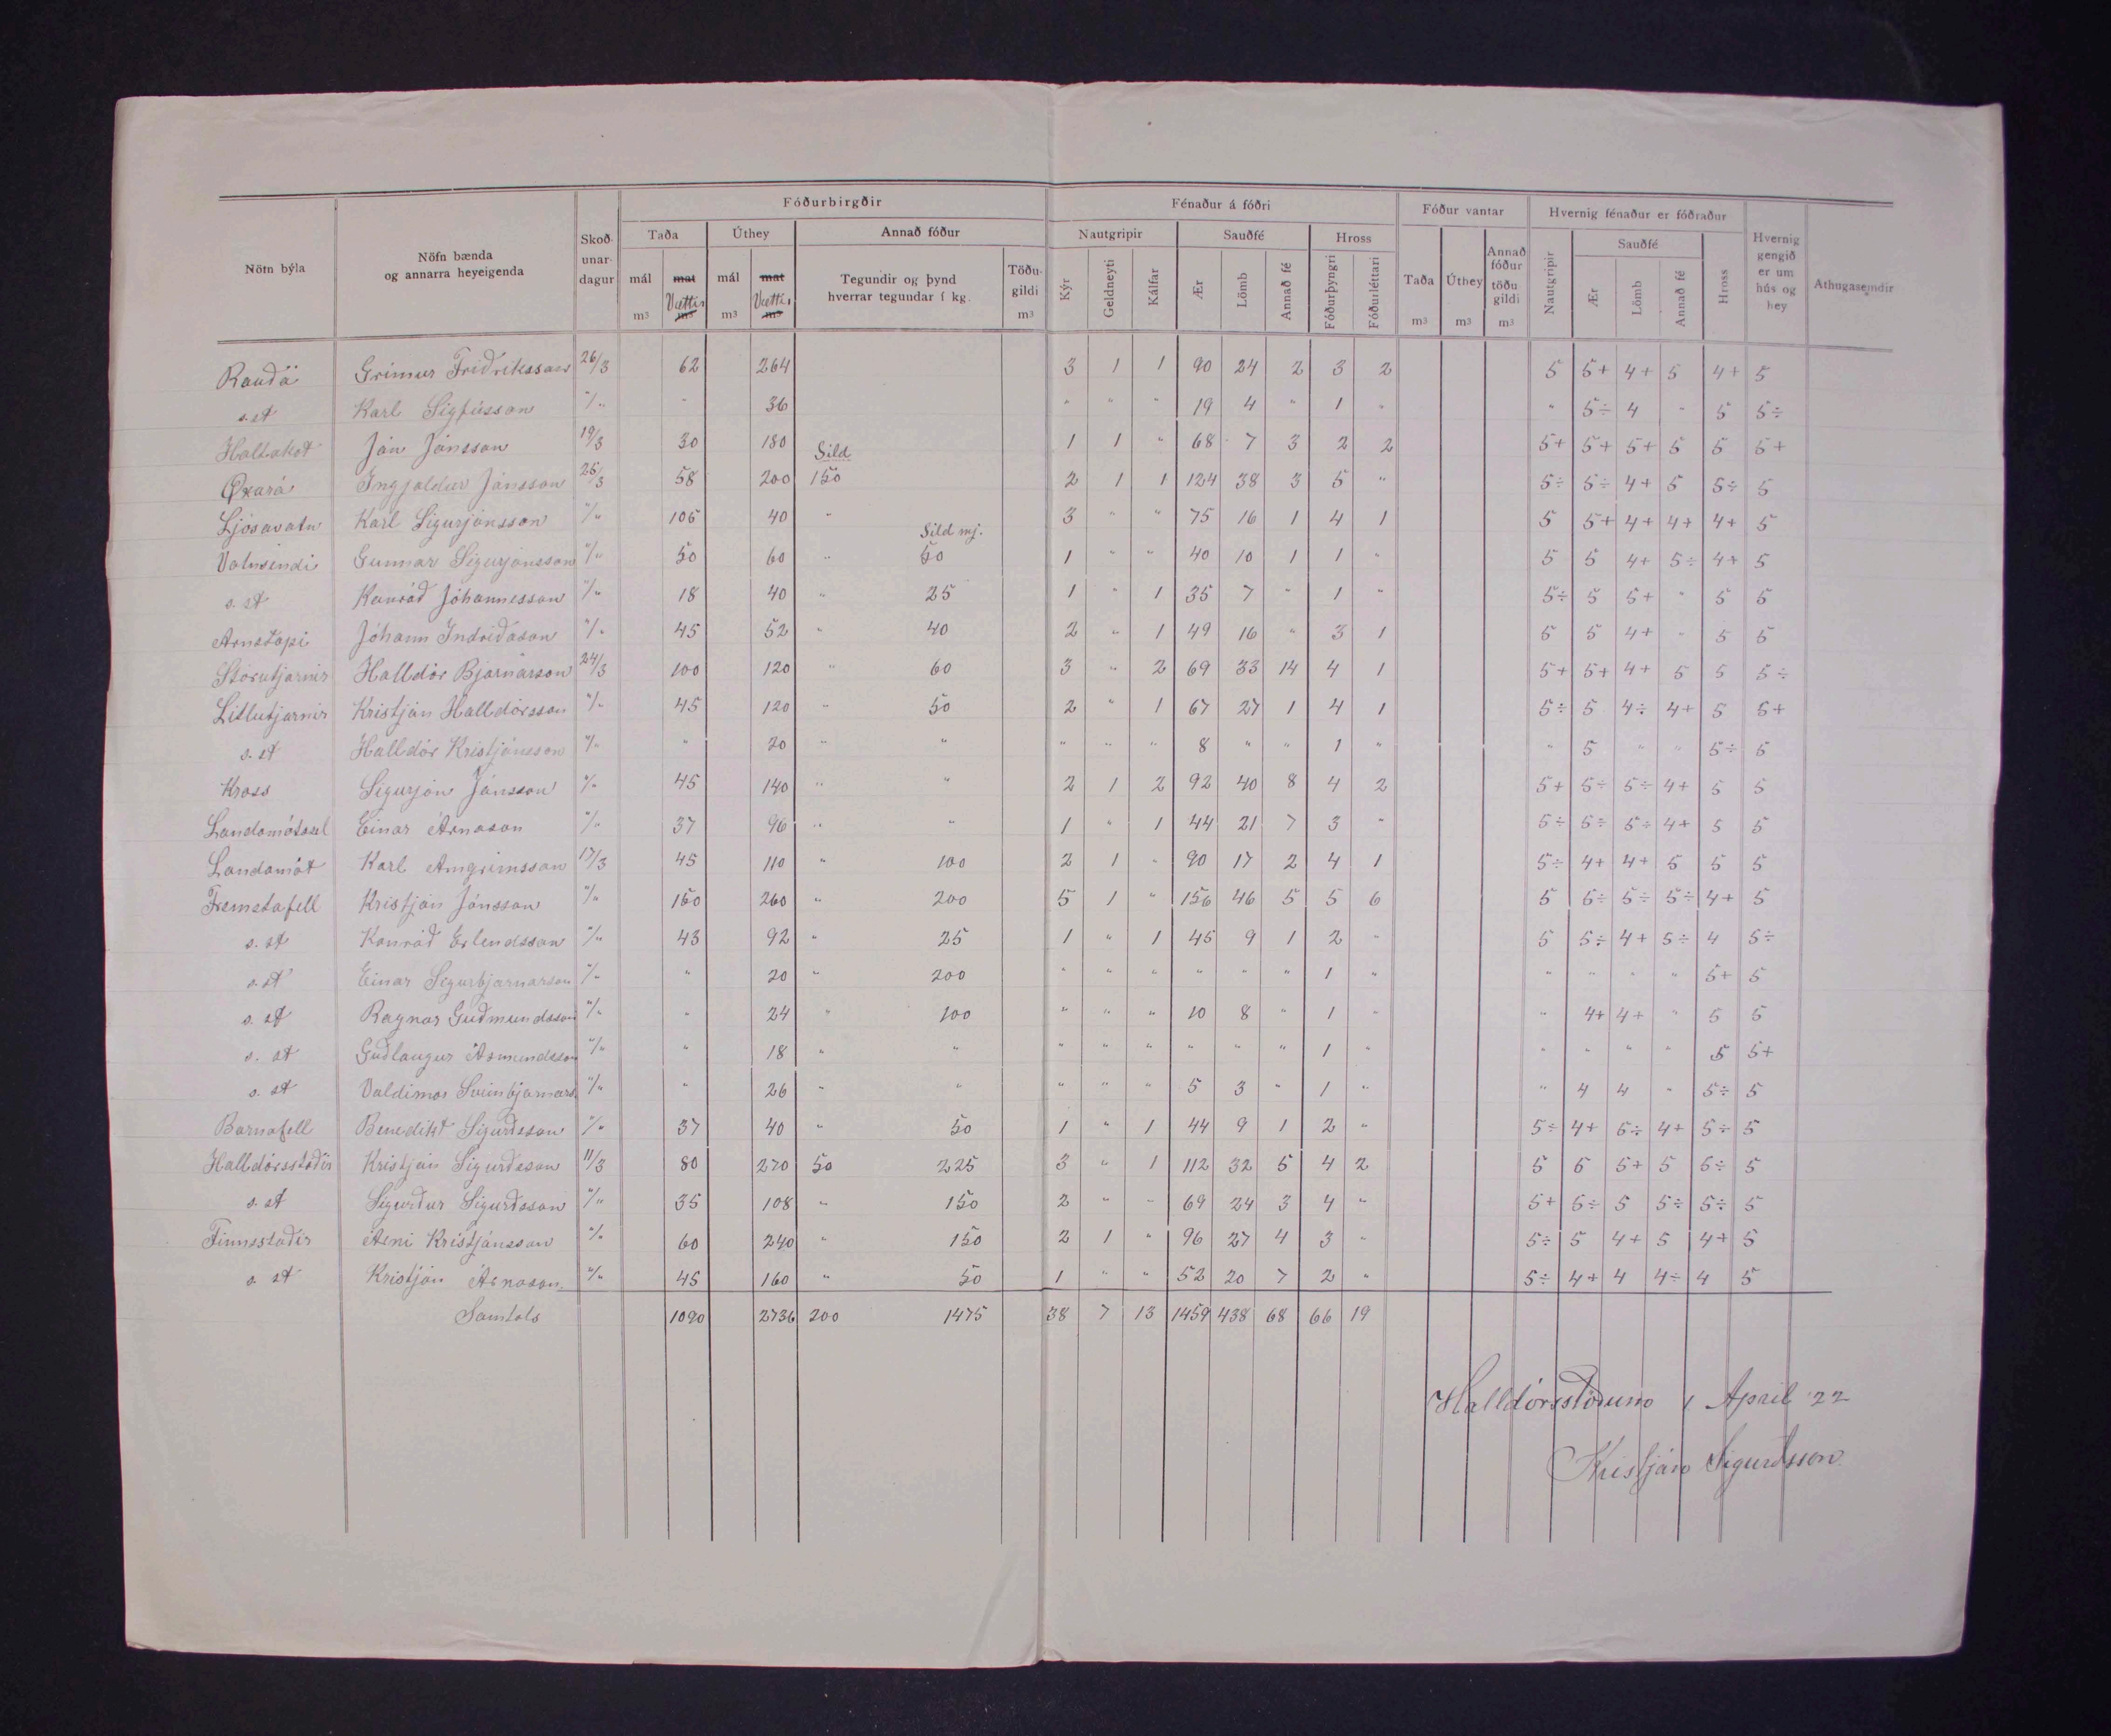 Fóðurbirgðir Fénaður á fóðri Fóður vantar Hvernig fénaður er fóðraður
Nöfn býla Nöfn bænda og annarra heyeigenda Skoð-unar-dagur Taða Úthey Annað fóður Nautgripir Sauðfé Hross Taða Úthey Annað fóður töðu gildi Nautgripir Sauðfé Hross Hvernig gengið er um hús og hey Athugasemdir
mál mat Vættir mál mat Vættir Tegundir og þynd hverrar tegundar í kg. Töðu-gildi Kýr Geldneyti Kálfar Ær Lömb Annað fé Fóðurþyngri Fóðurléttari Ær Lömb Annað fé
m³ m³ m³ m³ m³ m³ m³ m³
Rauðá Grímur Friðriksson 26/3 62 264 3 1 1 90 24 2 3 2 5 5+ 4+ 5 4+ 5
s.st Karl Sigfússon "/" " 36 " " " 19 4 " 1 " " 5÷ 4 " 5 5÷
Hallakot Ján Jónsson 19/3 30 180 1 1 " 68 7 3 2 2 5+ 5+ 5+ 5 5 5+
Sild
Øxará Ingjaldur Jónsson 25/3 58 200 150 2 1 1 124 38 3 5 " 5÷ 5÷ 4+ 5 5÷ 5
Ljósavatn Karl Sigurjónsson "/" 105 40 " 3 " " 75 16 1 4 1 5 5+ 4+ 4+ 4+ 5
Sild mj.
Vatnsendi Gunnar Sigurjónsson "/" 50 60 " 50 1 " " 40 10 1 1 " 5 5 4+ 5÷ 4+ 5
s. st Konráð Jóhannesson "/" 18 40 " 25 1 " 1 35 7 " 1 " 5÷ 5 5+ " 5 5
Arnstapi Jóhann Indriðason "/" 45 52 " 40 2 " 1 49 16 " 3 1 5 5 4+ " 5 5
Stórutjarnir Halldór Bjarnarson 24/3 100 120 " 60 3 " 2 69 33 14 4 1 5+ 5+ 4+ 5 5 5÷
Litlutjarnir Kristján Halldórsson "/" 45 120 " 50 2 " 1 67 27 1 4 1 5÷ 5 4÷ 4+ 5 5+
s. st Halldór Kristjánsson "/" " 20 " " " " " 8 " " 1 " " 5 " " 5÷ 5
Kross Sigurjón Jónsson "/" 45 140 " " 2 1 2 92 40 8 4 2 5+ 5÷ 5÷ 4+ 5 5
Landamótssel Einar Árnason "/" 37 96 " " 1 " 1 44 21 7 3 " 5÷ 5÷ 5÷ 4+ 5 5
Landamót Karl Arngrímsson 17/3 45 110 " 100 2 1 " 90 17 2 4 1 5÷ 4+ 4+ 5 5 5
Fremstafell Kristján Jónsson "/" 150 260 " 200 5 1 " 156 46 5 5 6 5 5÷ 5÷ 5÷ 4+ 5
s. st Konráð Erlendsson "/" 43 92 " 25 1 " 1 45 9 1 2 " 5 5÷ 4+ 5÷ 4 5÷
s. st Einar Sigurbjarnarson "/" " 20 " 200 " " " " " " 1 " " " " " 5+ 5
s. st Ragnar Guðmundsson "/" " 24 " 100 " " " 10 8 " 1 " " 4+ 4+ " 5 5
s. st Guðlaugur Ásmundsson "/" " 18 " " " " " " " " 1 " " " " " 5 5+
s. st Valdimar Sveinbjarnars. "/" " 26 " " " " " 5 3 " 1 " " 4 4 " 5÷ 5
Barnafell Benedikt Sigurðsson "/" 37 40 " 50 1 " 1 44 9 1 2 " 5÷ 4+ 5÷ 4+ 5÷ 5
Halldórsstaðir Kristján Sigurðsson 11/3 80 270 50 225 3 " 1 112 32 5 4 2 5 5 5+ 5 5÷ 5
s. st Sigurður Sigurðsson "/" 35 108 " 150 2 " " 69 24 3 4 " 5+ 5÷ 5 5÷ 5÷ 5
Finnsstaðir Árni Kristjánsson "/" 60 240 " 150 2 1 " 96 27 4 3 " 5÷ 5 4+ 5 4+ 5
s. st Kristján Árnason "/" 45 160 " 50 1 " " 52 20 7 2 " 5÷ 4+ 4 4÷ 4 5
Samtals 1090 2736 200 1475 38 7 13 1459 438 68 66 19
Halldórsstöðum 1 April '22
Kristján Sigurðsson